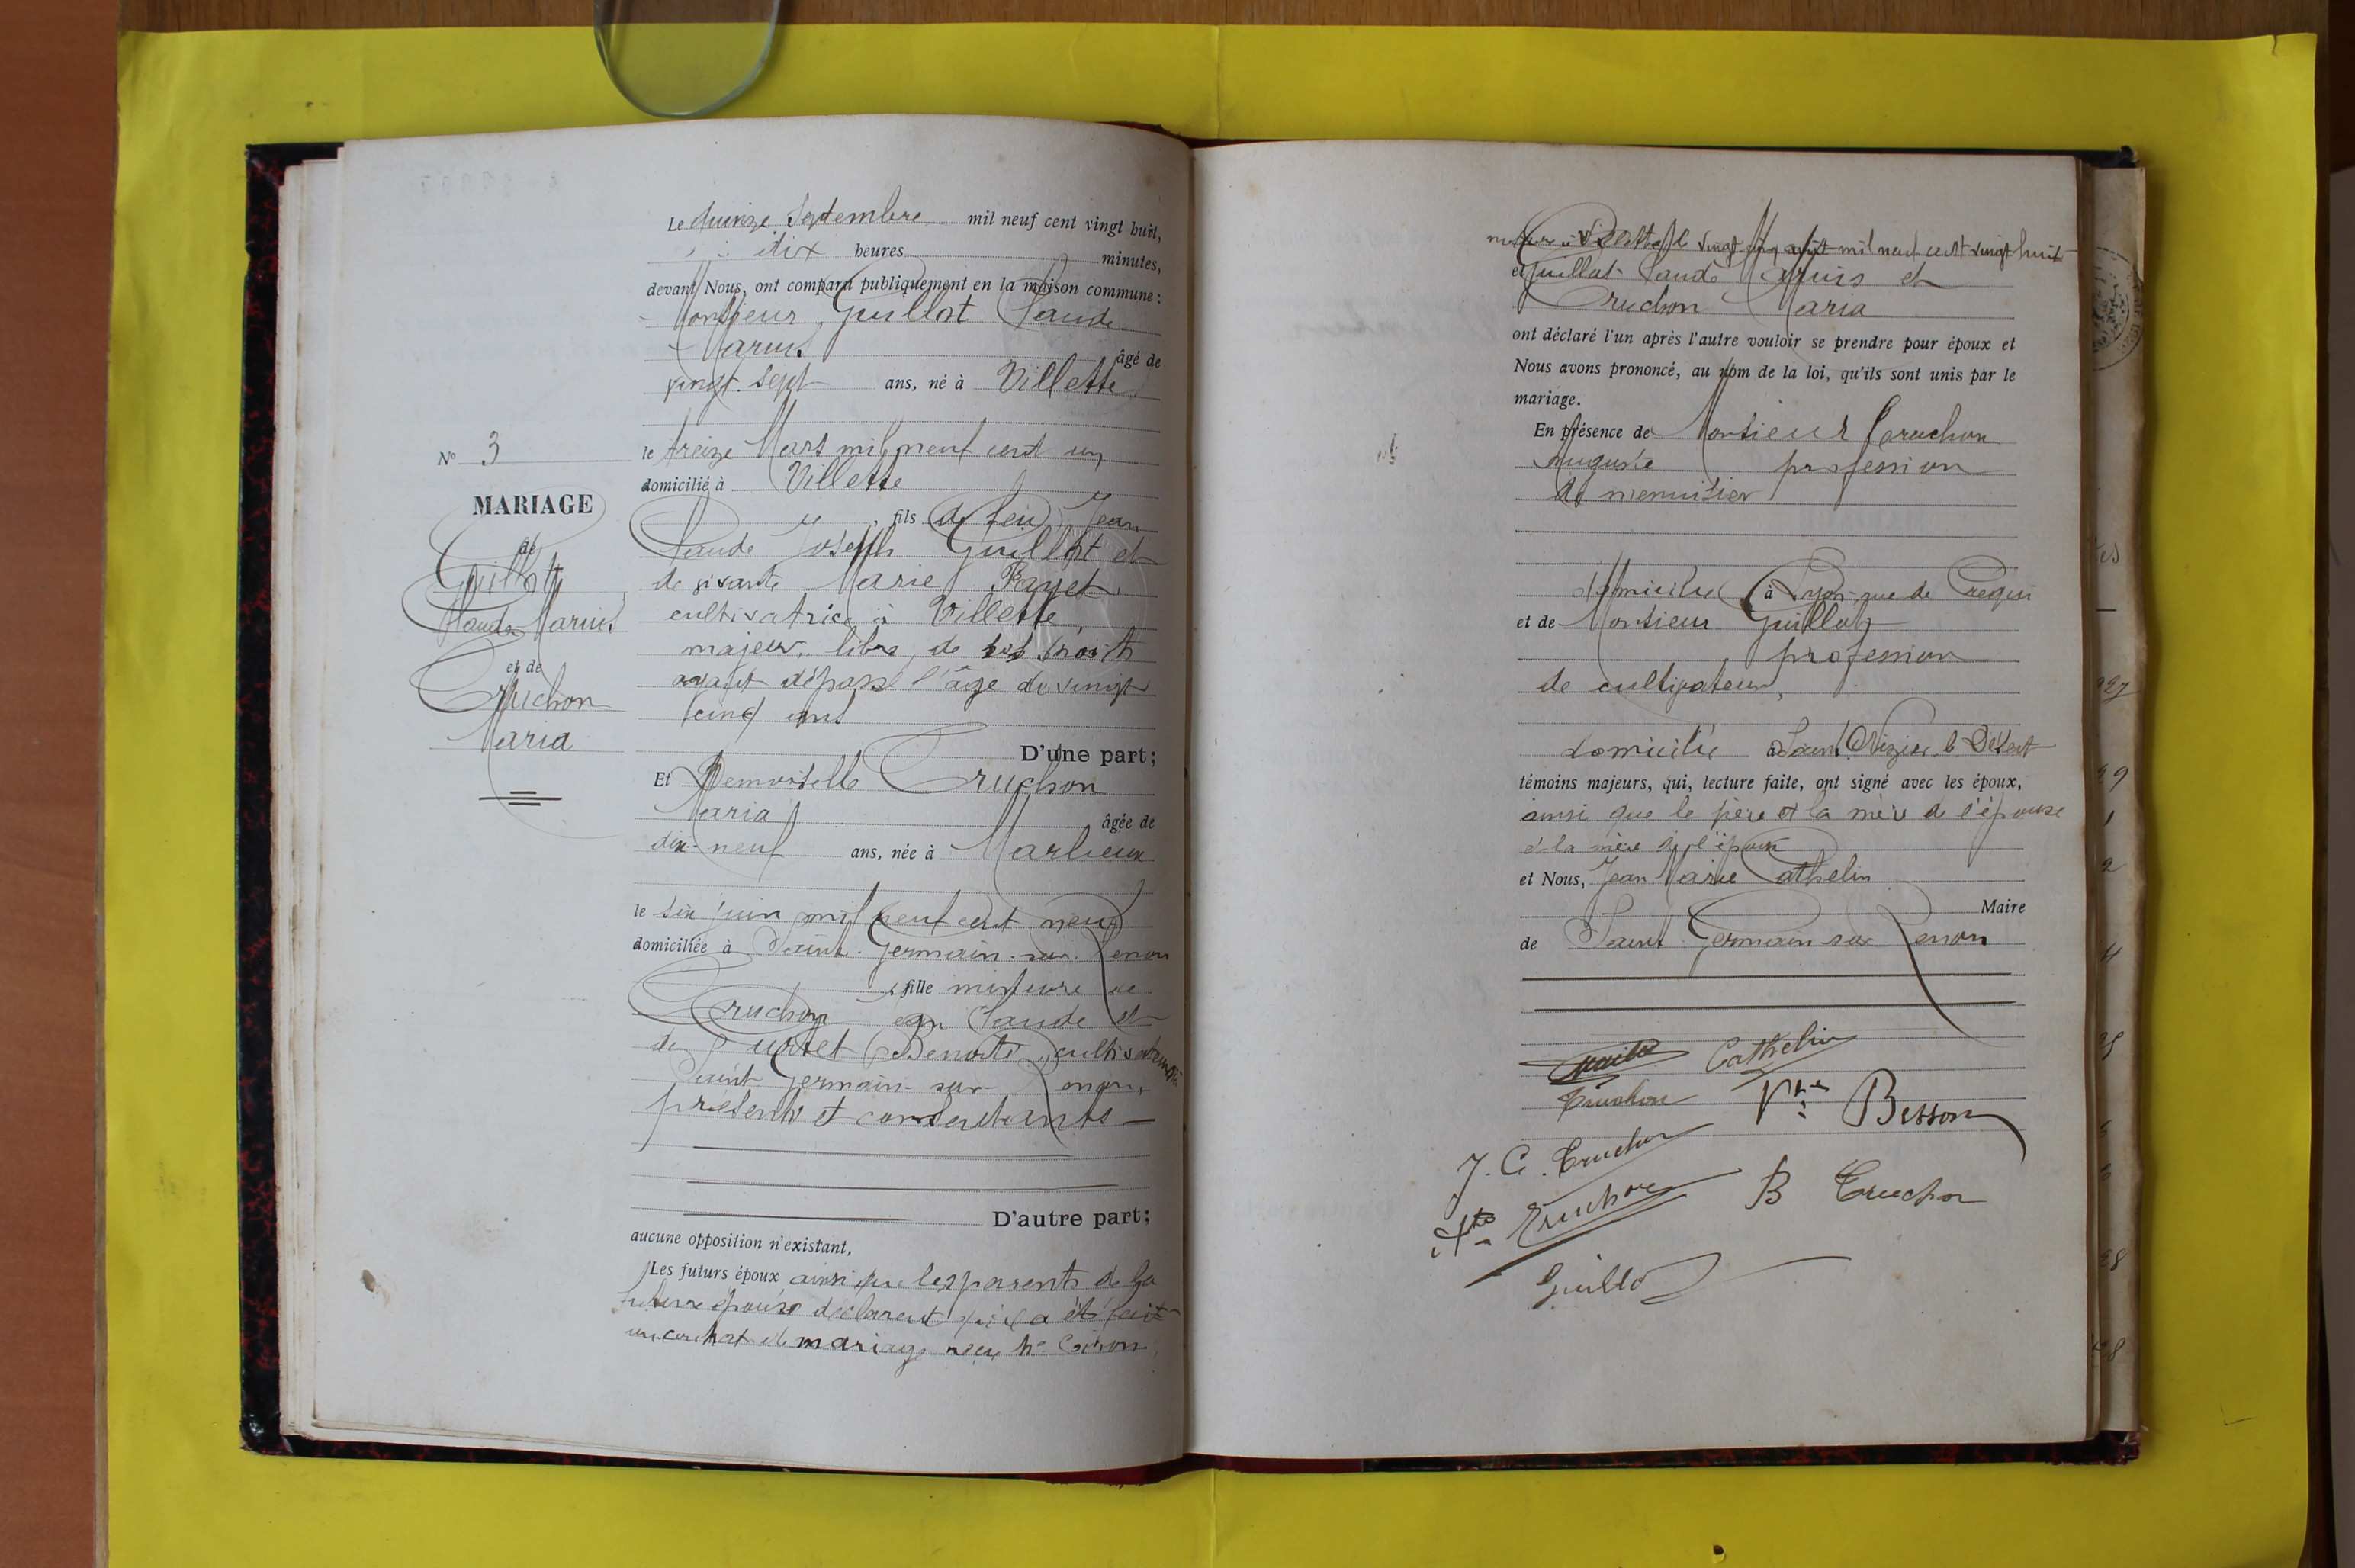 Le quinze Septembre mil neuf cent vingt huit,
dix heures minutes,
devant Nous, ont comparu publiquement en la maison commune :
Monsieur Guillot Claude
Marius âgé de
vingt-sept ans, né à Villette
le treize Mars mil neuf cent un
domicilié à Villette
fils de feu Jean
Claude Joseph Guillot et
de vivante Marie Fayet
cultivatrice à Villette,
majeur, libre de ses droits
ayant dépassé l'âge de vingt
cinq ans
D'une part;
Et Demoiselle Truchon
Maria âgée de
dix-neuf ans, née à Marlieux
le six juin mil neuf cent neuf
domiciliée à Saint-Germain-sur-Renon
fille mineure de
Truchon Jean Claude et
de Benoîte, cultivateurs à
Saint Germain-sur-Renon,
présents et consentants
D'autre part;
aucune opposition n'existant,
Les futurs époux ainsi que les parents de la
future épouse déclarent qu'il a été fait
un contrat de mariage reçu Me
N° 3
MARIAGE
de
Guillot
Claude Marius
et de
Truchon
Maria
notaire à le vingt cinq août mil neuf cent vingt huit
et Guillot Claude Marius et
Truchon Maria
ont déclaré l'un après l'autre vouloir se prendre pour époux et
Nous avons prononcé, au nom de la loi, qu'ils sont unis par le
mariage.
En présence de Monsieur Truchon
Auguste profession
de menuisier
domicilié à Lyon rue de Créqui
et de Monsieur Guillot
profession
de cultivateur,
domicilié à Saint Nizier le Désert
témoins majeurs, qui, lecture faite, ont signé avec les époux,
ainsi que le père et la mère de l'épouse
et la mère de l'époux
et Nous, Jean Marie Cathelin
Maire
de Saint Germain sur Renon
Cathelin
Truchon Vve Besson
J. C. Truchon
Truchon B Truchon
Guillot